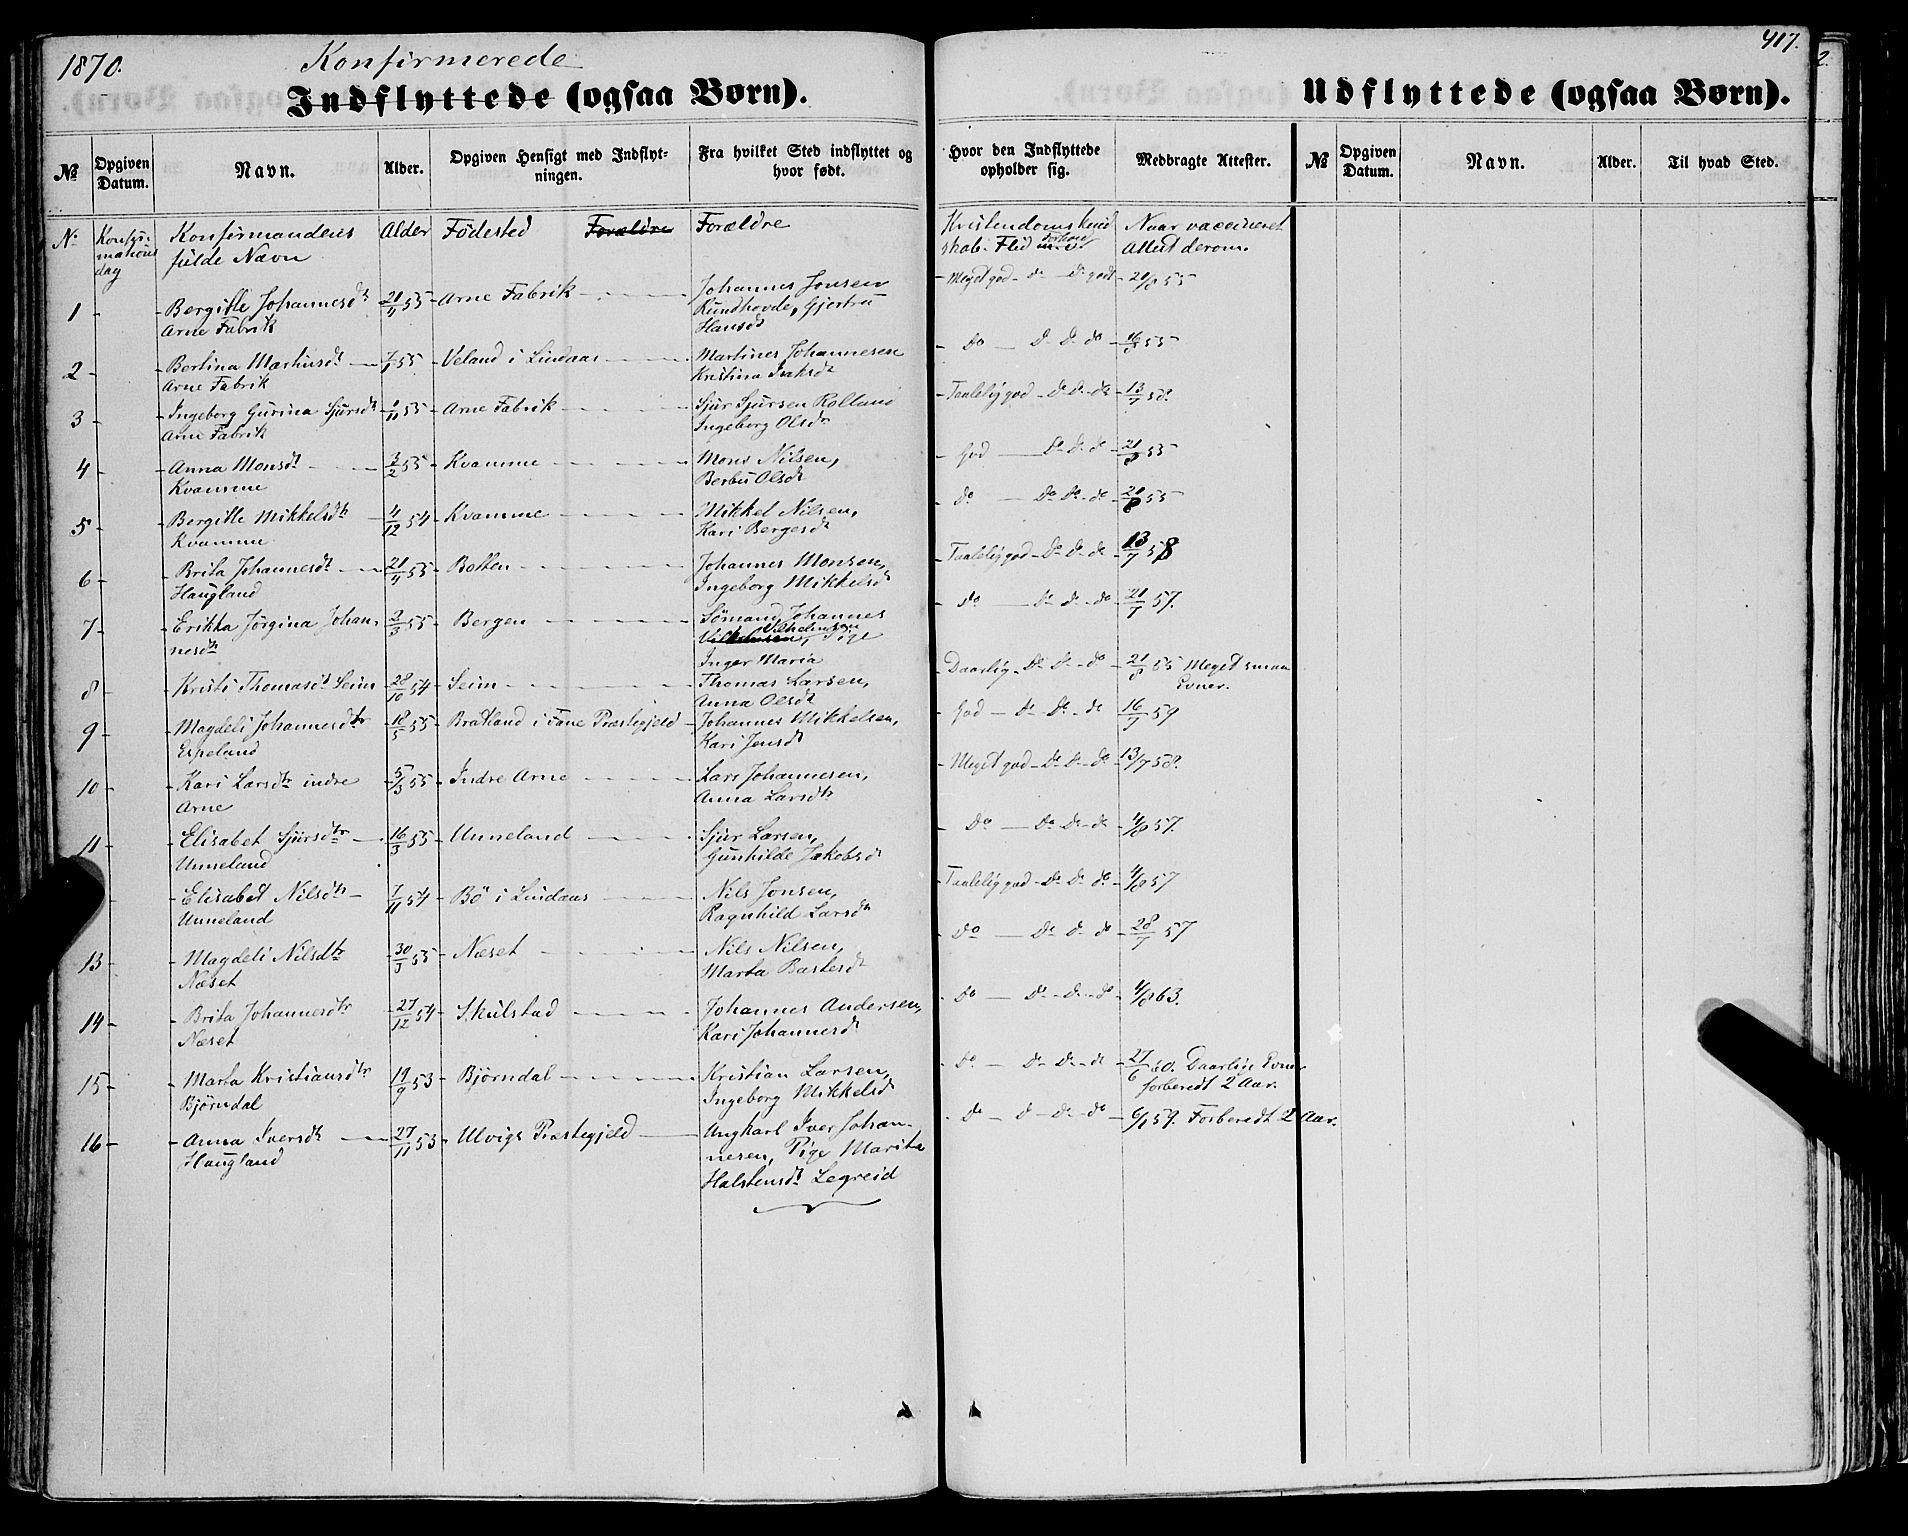 1870.
Konfirmerede
Indflyttede (ogsaa Børn).
No
Opgiven Datum.
Navn.
Alder.
Opgiven Hensigt med Indflyt-
ningen.
Fra hvilket Sted indflyttet og
hvor født.
No Konfir-
mations
dag
Konfirmandens
fulde Navn
Alder Födested Forældre Forældre
1 Bergitte Johannesdt 21/4 55 Arne Fabrik Johannes Jonsen
Arne Fabrik Rundhovde, Gjertru
Hansdt
2 Bertina Martinsdt 7/1 55 Veland i Lindaas Martines Johannesen
Arne Fabrik Kristina Isaksdt
3 Ingeborg Gurina Sjursdt 1/11 55 Arne Fabrik Sjur Sjursen Rolland
Arne Fabrik Ingeborg Olsdr
4 Anna Monsdt 3/2 55 Kvamme Mons Nilsen,
Kvamme Olsdt
5 Bergitte Mikkelsdt 4/12 54 Kvamme Mikkel Nilsen,
Kvamme Kari Bergesdt
6 Brita Johannesdt 21/4 55 Botten Johannes Monsen,
Haugland Ingeborg Mikkelsdt
7 Erikka Jørgina Johan- 2/3 55 Bergen Sömand Johannes
nesdt Vilhelmsen, Pige
Inger Maria
8 Kristi Thomasdt Seim 28/10 54 Seim Thomas Larsen,
Anna Olsdt
9 Magdeli Johannesdtr 18/5 55 Bratland i Fane Præstegjeld Johannes Mikkelsen,
Espeland Kari Jensdt
10 Kari Larsdtr indre 5/3 55 Indre Arne Lars Johannesen,
Arne Anna Larsdtr
11 Elisabet Sjursdtr 16/3 55 Unneland Sjur Larsen,
Unneland Gunhilde Jakobsdt
Elisabet Nilsdtr 7/11 54 Bö i Lindaas Nils Jonsen,
Unneland Ragnhild Larsdtr
13 Magdeli Nilsdtr 30/3 55 Næset Nils Nilsen,
Næset Marta
14 Brita Johannesdtr 27/12 54 Skulstad Johannes Andersen,
Næset Kari Johannesdt
15 Marta Kristiansdtr 19/9 53 Björndal Kristian Larsen,
Björndal Ingeborg Mikkelsdt
16 Anna Iversdt 27/11 53 Ulvigs Præstegjeld Ungkarl Iver Johan-
Haugland nesen, Pige Marita
Halstensdt Legreid
417.
Udflyttede (ogsaa Børn).
Hvor den Indflyttede
opholder sig.
Medbragte Attester.
No
Opgiven Datum.
Navn.
Alder.
Til hvad Sted.
Kristendomskund Naar vaccineret
skab. Flid Forhold Attest derom.
Meget god do Do godt 21/8 55
do Do Do do 16/9 55
Taalelig god Do Do do 13/7 58.
God Do Do do 21/8 55
do Do Do do 21/8 55
Taalelig god Do Do do 13/7 58
do Do Do do 21/7 57.
Daarlig Do Do do 21/8 55 Meget smaa
Evner.
God Do Do do 16/7 59
Meget god Do Do do 13/7 58.
Do Do Do do 4/8 57.
Taalelig god Do Do do 4/8 57
Do Do Do do 28/7 57
do Do Do do 4/8 63.
do Do Do do 27/6 60. Daarlige Evner
forberedt 2 Aar.
do Do Do do 6/1 59. Forberedt 2 Aar.